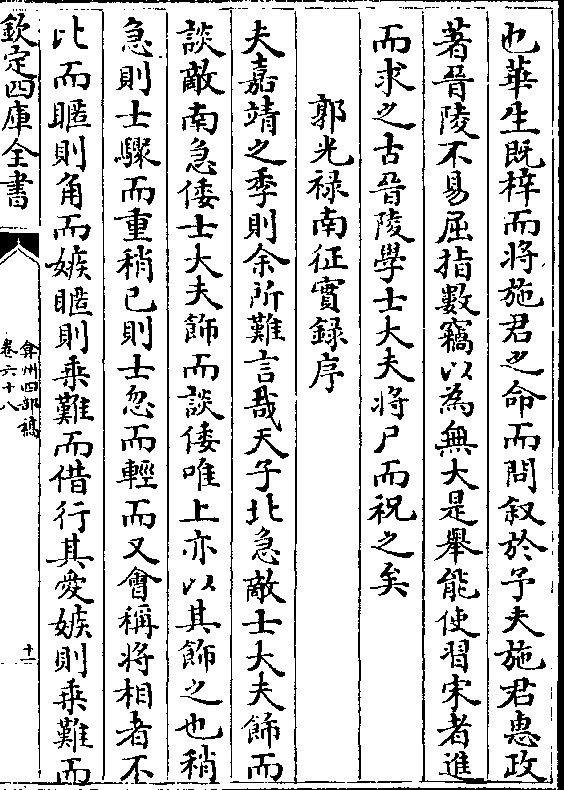 也華生既梓而將施君之命而問叙於予夫施君惠政
著晉陵不易屈指數竊以為無大是舉能使習宋者進
而求之古晉陵學士大夫將尸而祝之矣
郭光禄南征實録序
夫嘉靖之季則余所難言哉天子北急敵士大夫飾而
談敵南急倭士大夫飾而談倭唯上亦以其飾之也稍
急則士驟而重稍已則士忽而輕而又會稱將相者不
比而暱則角而嫉暱則乗難而借行其愛嫉則乗難而
欽定四庫全書
弇州四部稿
卷六十八
十二